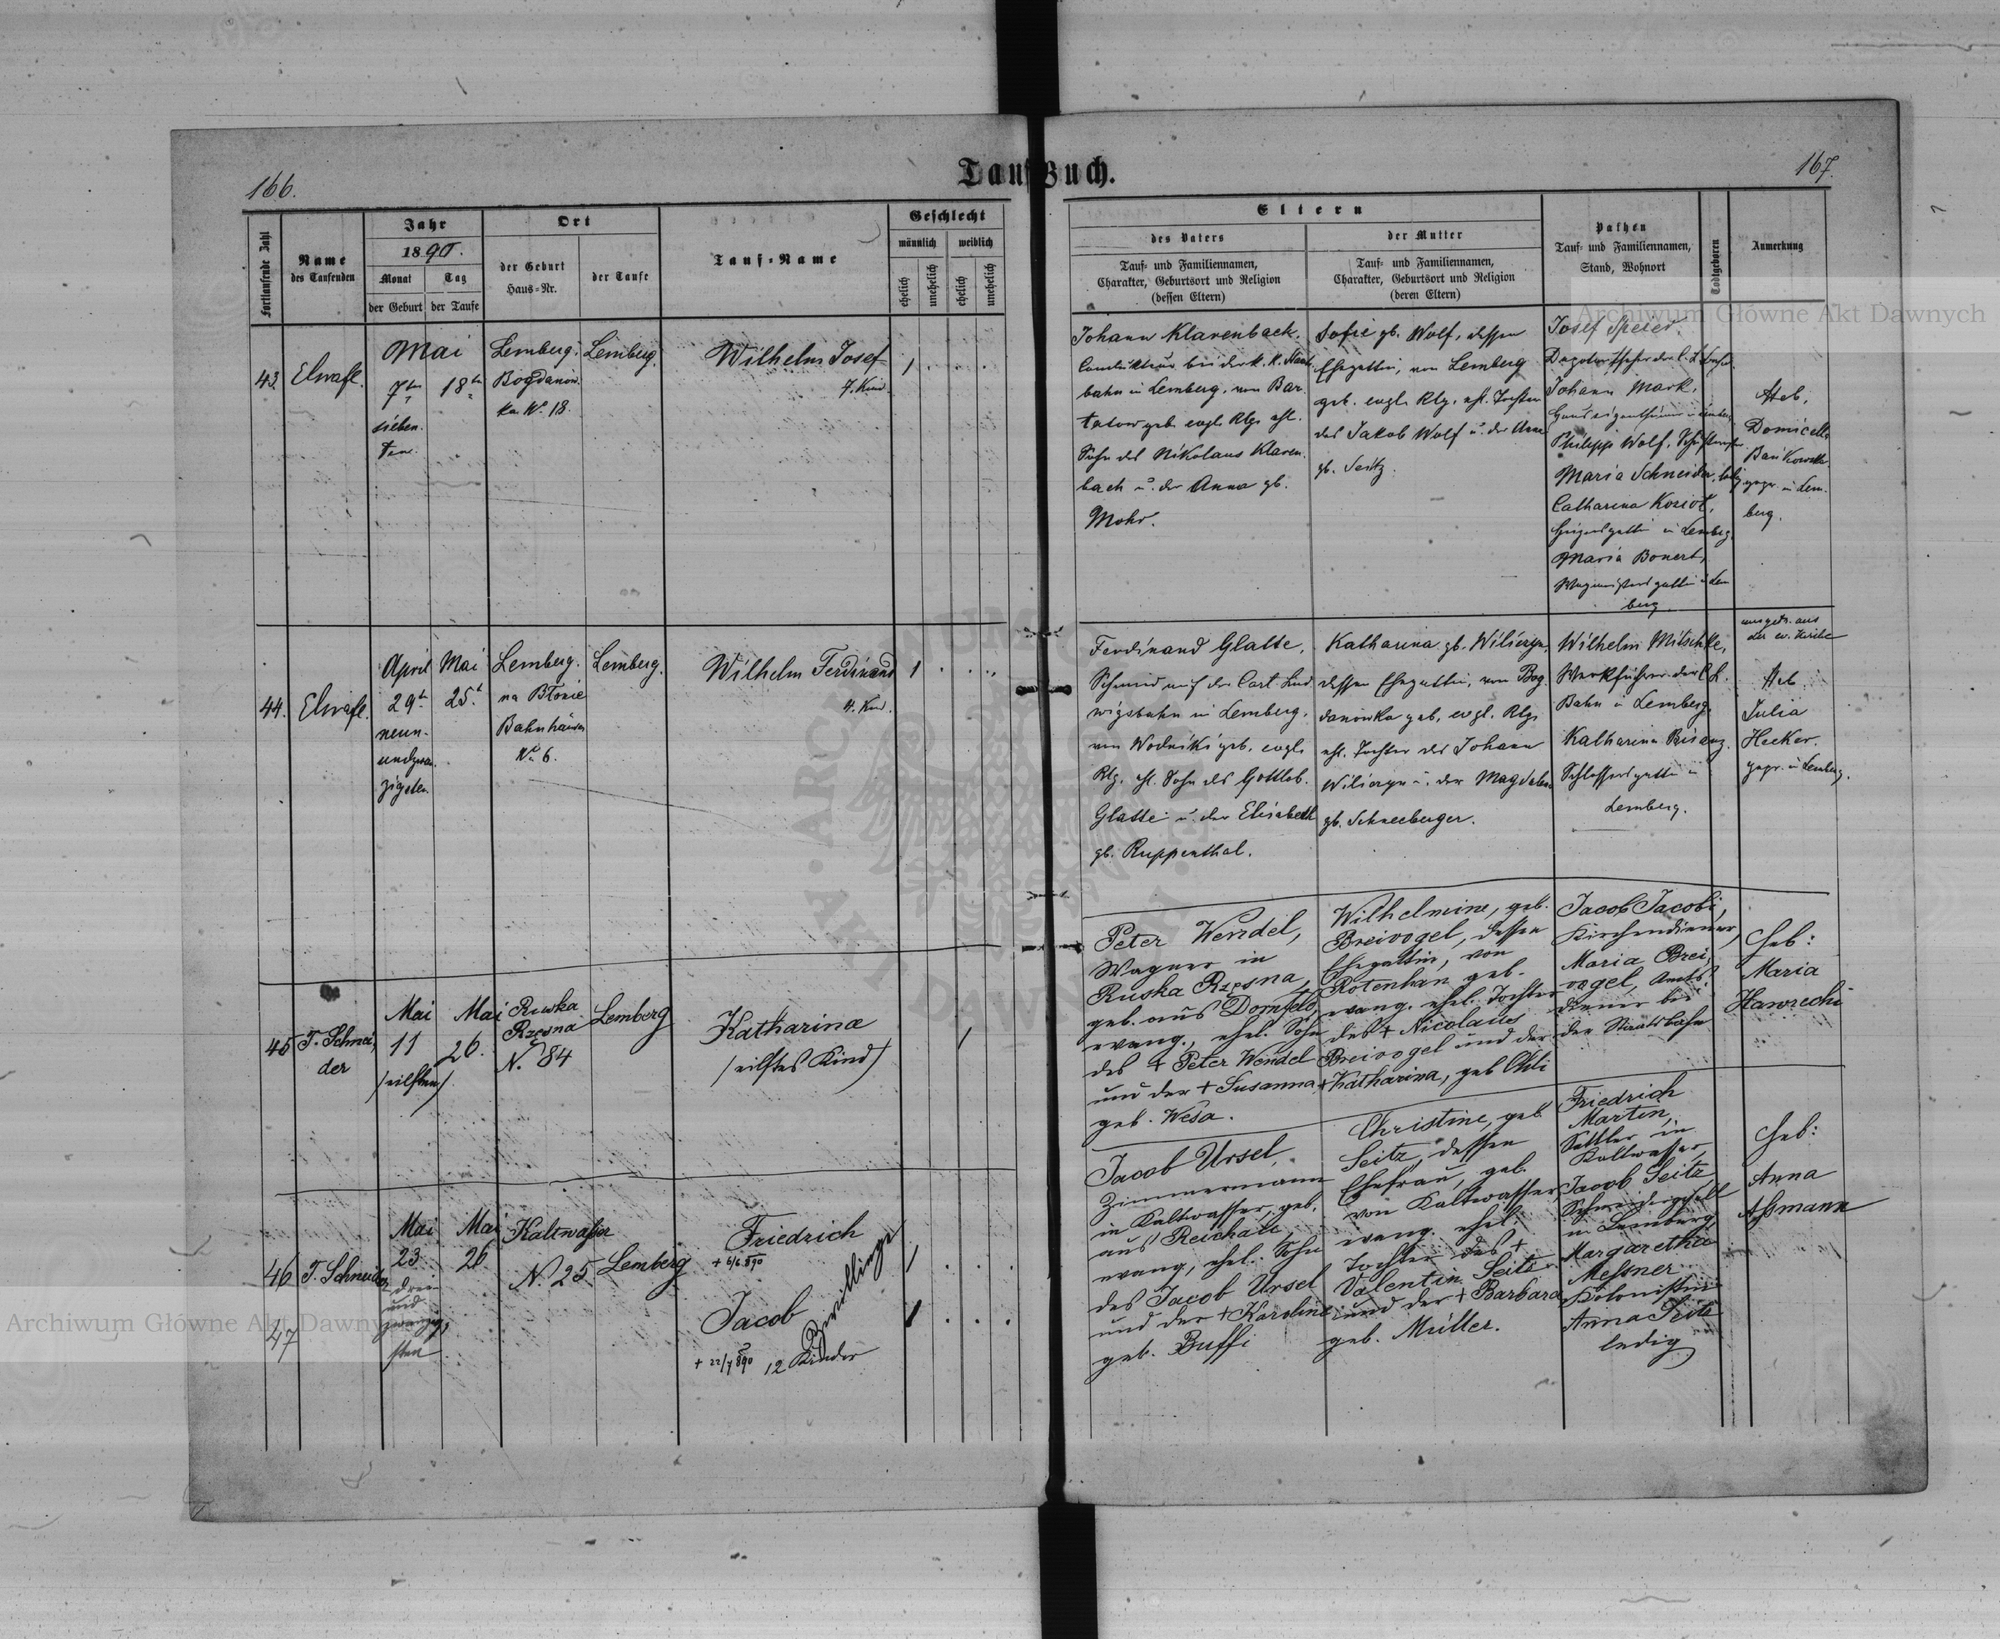 166.
Taufbuch.
167.
Fortlaufende Zahl
Name
des Taufenden
Jahr
1890.
Monat
Tag
der Geburt
der Taufe
Ort
der Geburt
Haus-Nr.
der Taufe
Tauf-Name
Geschlecht
männlich
weiblich
ehelich
unehelich
ehelich
unehelich
Eltern
des Vaters
Tauf- und Familiennamen,
Charakter, Geburtsort und Religion
(dessen Eltern)
der Mutter
Tauf- und Familiennamen,
Charakter, Geburtsort und Religion
(deren Eltern)
Pathen
Tauf- und Familiennamen,
Stand, Wohnort
Todtgeboren
Anmerkung
43.
Mai
7ten
sieben-
ten
18ten
Lemberg.
Bogdanow-
ka No. 18.
Lemberg.
Wilhelm Josef
7. Kind.
Johann Klarenback.
bahn in Lemberg, von Bar-
tatow geb. evgl. Rlg. ehl.
Sohn des Nikolaus Klaren-
bach u. der Anna gb.
Mohr.
Sofie gb. Wolf, dessen
Ehegattin, von Lemberg
geb. evgl. Rlg. ehl. Tochter
des Jakob Wolf u. der Anna
gb. Seitz.
Josef Speier.
Johann Mark,
Philipp Wolf,
Maria Schneider,
Catharina Koziot,
in Lemberg
Maria Bonert,
berg.
Heb.
Domicella
in Lem-
berg.
44.
April
29t
neun-
undzwan-
zigsten
Mai
25t
Lemberg.
na Błonie
Bahnhäuser
No. 6.
Lemberg.
Wilhelm Ferdinand
4. Kind.
Ferdinand Glatte,
Schmied auf der Carl Lud-
wigsbahn in Lemberg,
von Wodniki geb. evgl.
Rlg. ehl. Sohn des Gottlob
Glatte u. der Elisabeth
gb. Ruppenthal.
dessen Ehegattin, von Bog-
danowka geb. evgl. Rlg.
ehl. Tochter des Johann
gb. Schneeberger.
Wilhelm Mitschke,
Werkführer der C. L.
Bahn in Lemberg.
Katharina Bisanz.
Schlossersgattin in
Lemberg.
ausgetr. aus
der ev. Kirche
Heb.
Julia
Hecker.
gepr. in Lemberg.
45
T. Schnei-
der
Mai
11
(eilften)
Mai
26.
Ruska
Rzęsna
N. 84
Lemberg
Katharina
(eilftes Kind)
Peter Wendel,
Wagner in
Ruska Rzęsna,
geb. aus Dornfeld,
evang., ehel. Sohn
des + Peter Wendel
und der + Susanna
geb. Wesa.
Wilhelmine, geb.
Breivogel, dessen
Ehegattin, von
Rotenhan geb.
evang. ehel. Tochter
des + Nicolaus
Breivogel und der
+ Katharina, geb.
Jacob Jacobi,
Kirchendiener,
Maria Brei-
vogel, Amts-
diener bei
der Staatsbahn
Heb:
Maria
Hawrecki
46
47
T. Schneider
Mai
23
drei-
und
zwanzig-
sten
Mai
26
Kaltwasser
N. 25
Lemberg
Friedrich
+ 6/6 890
Jacob
+ 22/7 890
Zwillinge
12 Kinder
Jacob Ursel,
Zimmermann
in Kaltwasser, geb.
aus Reichau,
evang., ehel. Sohn
des Jacob Ursel
und der + Karoline
geb. Buffi
Christine, geb.
Seitz, dessen
Ehefrau, geb.
von Kaltwasser,
evang. ehel.
Tochter des +
Valentin Seitz
und der + Barbara
geb. Müller.
Friedrich
Marten,
Sattler in
Kaltwasser,
Jacob Seitz
in Lemberg,
Margarethe
Messner
Kolonistin
Anna Seitz
ledig
Heb:
Anna
Aßmann
Archiwum Główne Akt Dawnych
Archiwum Główne Akt Dawnych